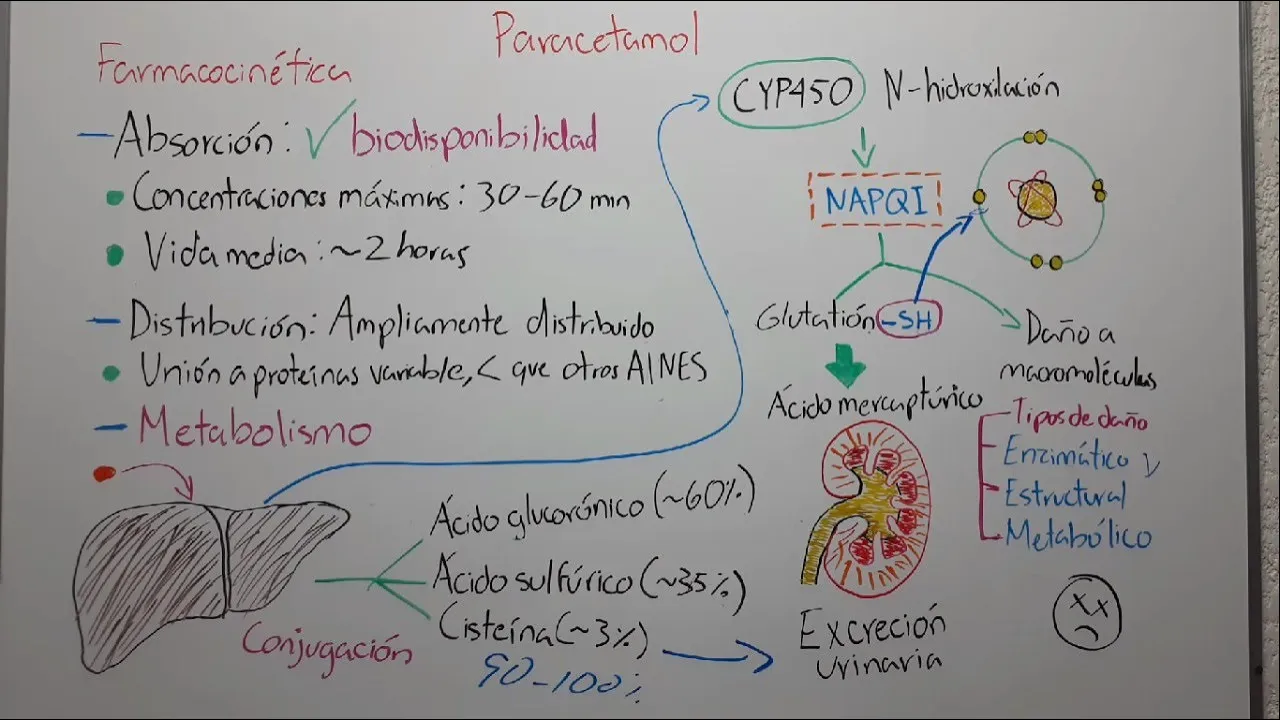 Paracetamol
Farmacocinética
– Absorción: ✓ biodisponibilidad
• Concentraciones máximas: 30-60 min
• Vida media: ~2 horas
– Distribución: Ampliamente distribuido
• Unión a proteínas variable, < que otros AINES
– Metabolismo
Ácido glucorónico (~60%)
Ácido sulfúrico (~35%)
Cisteína (~3%)
Conjugación
90-100%
CYP450 N-hidroxilación
NAPQI
Glutatión -SH
Ácido mercaptúrico
Excreción
urinaria
Daño a
macromoléculas
Tipos de daño
Enzimático
Estructural
Metabólico